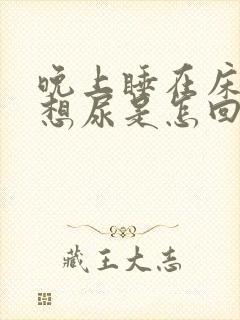 晚上睡在床
想尿是怎回
藏王大志